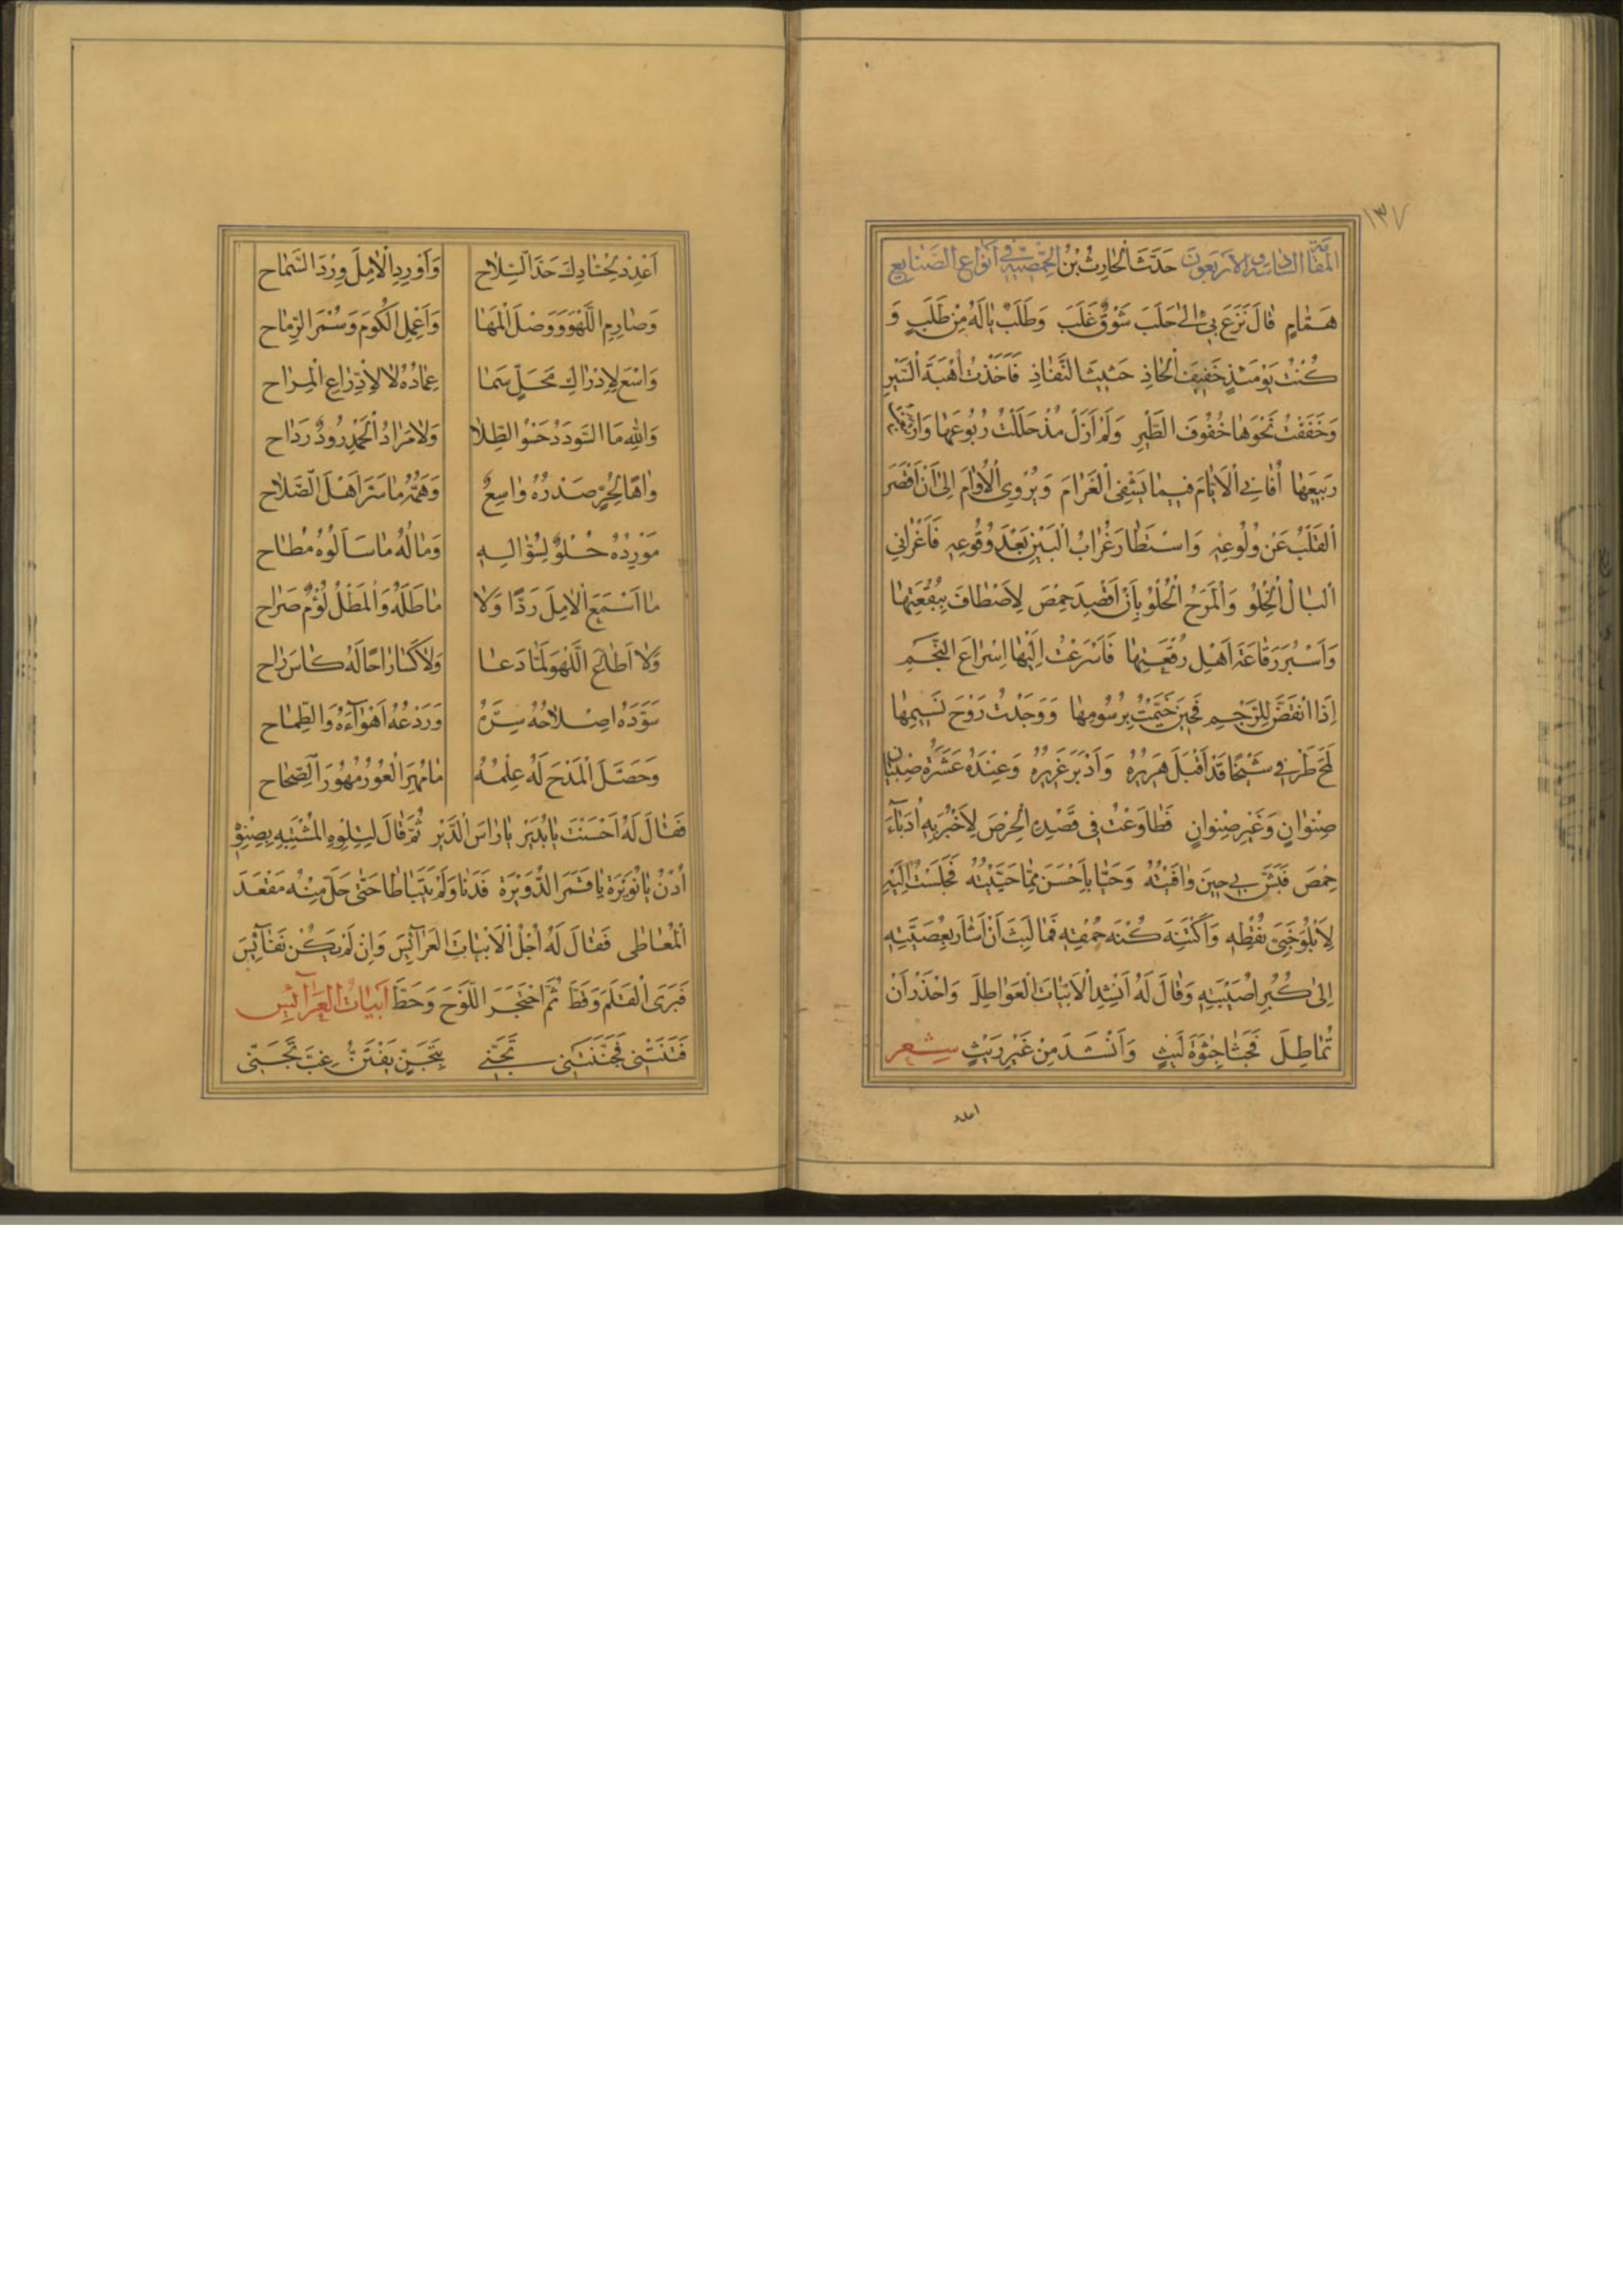 ١٣٧
المقامة السادسة والاربعون حَدَّثَ الْحَارِثُ بْنُ الحمصية في أنواع الصنايع
هَمَّامٍ قَالَ نَزَعَ بِي إِلىٰ حَلَبَ شَوْقٌ غَلَبَ وَطَلَبٌ يَالَهُ مِنْ طَلَبٍ وَ
كُنْتُ يَوْمَئِذٍ خَفِيفَ الْحَاذِ حَثِيثَ النَّفَاذِ فَاَخَذْتُ أُهْبَةَ السَّيْرِ
وَخَفَفْتُ نَحْوَهَا خُفُوفَ الطَّيْرِ وَلَمْ أَزَلْ مُذْ حَلَلْتُ رُبُوعَهَا وَارْتَبَعْتُ
رَبِيعَهَا أُفَانِي الْاَيَّامَ فِيمَا يَشْفِي الْغَرَامَ وَيُرْوِي الْأُوَامَ إِلىٰ أَنْ اَقْصَرَ
الْقَلْبُ عَنْ وُلُوعِهِ وَاسْتَطَارَ غُرَابُ الْبَيْنِ بَعْدَ وُقُوعِهِ فَاَغْرَانِي
الْبَالُ الْخِلْوُ وَالْمَرَحُ الْحُلْوُ بِأَنْ اَقْصِدَ حِمْصَ لِاَصْطَافَ بِبُقْعَتِهَا
وَاَسْبُرَ رَقَاعَةَ اَهْلِ رُقْعَتِهَا فَاَسْرَعْتُ اِلَيْهَا اِسْرَاعَ النَّجْمِ
اِذَا انْقَضَّ لِلرَّجْمِ فَحِينَ خَيَّمْتُ بِرُسُومِهَا وَوَجَدْتُ رَوْحَ نَسِيمِهَا
لَمَحَ طَرْفِي شَيْخًا قَدْ اَقْبَلَ هَرِيرُهُ وَاَدْبَرَ غَرِيرُهُ وَعِنْدَهُ عَشَرَةُ صِبْيَانٍ
صِنْوَانٍ وَغَيْرِ صِنْوَانٍ فَطَاوَعْتُ فِي قَصْدِهِ الْحِرْصَ لِاَخْبُرَ بِهِ اُدَبَاءَ
حِمْصَ فَبَشَّ بِي حِينَ وَافَيْتُهُ وَحَيَّا بِاَحْسَنَ مِمَّا حَيَّيْتُهُ فَجَلَسْتُ اِلَيْهِ
لِاَبْلُوَ جَنىٰ نُطْقِهِ وَاَكْتَنِهَ كُنْهَ حُمْقِهِ فَمَا لَبِثَ اَنْ اَشَارَ بِعُصَيَّتِهِ
اِلىٰ كُبْرِ اُصَيْبِيَتِهِ وَقَالَ لَهُ اَنْشِدِ الْاَبْيَاتَ الْعَوَاطِلَ وَاحْذَرْ اَنْ
تُمَاطِلَ فَجَثَا جِثْوَةَ لَيْثٍ وَاَنْشَدَ مِنْ غَيْرِ رَيْثٍ شعر
اعدد
اَعْدِدْ لِحُسَّادِكَ حَدَّ السِّلَاحِ وَاَوْرِدِ الْآمِلَ وِرْدَ السَّمَاحِ
وَصَارِمِ اللَّهْوَ وَوَصْلَ الْمَهَا وَاَعْمِلِ الْكُومَ وَسُمْرَ الرِّمَاحِ
وَاسْعَ لِاِدْرَاكِ مَحَلٍّ سَمَا عِمَادُهُ لَا لِادِّرَاعِ الْمِرَاحِ
وَاللهِ مَا السُّودَدُ حَسْوُ الطِّلَا وَلَا مَرَادُ الْحَمْدِ رُودٌ رَدَاحِ
وَاهًا لِحُرٍّ صَدْرُهُ وَاسِعٌ وَهَمُّهُ مَا سَرَّ اَهْلَ الصَّلَاحِ
مَوْرِدُهُ حُلْوٌ لِسُؤَّالِهِ وَمَالُهُ مَا سَاَلُوهُ مُطَاحِ
مَا اَسْمَعَ الْآمِلَ رَدًّا وَلَا مَاطَلَهُ وَالْمَطْلُ لُؤْمٌ صُرَاحِ
وَلَا اَطَاعَ اللَّهْوَ لَمَّا دَعَا وَلَا كَسَا رَاحًا لَهُ كَاسَ رَاحِ
سَوَّدَهُ اِصْلَاحُهُ سِرَّهُ وَرَدْعُهُ اَهْوَآءَهُ وَالطِّمَاحِ
وَحَصَّلَ الْمَدْحَ لَهُ عِلْمُهُ مَا مُهِرَ الْعُورُ مُهُورَ الصِّحَاحِ
فَقَالَ لَهُ اَحْسَنْتَ يَا بُدَيْرُ يَا رَاسَ الدَّيْرِ ثُمَّ قَالَ لِتِلْوِهِ الْمُشْتَبِهِ بِصِنْوِهِ
اُدْنُ يَا نُوَيْرَةُ يَا قَمَرَ الدُّوَيْرَةِ فَدَنَا وَلَمْ يَتَبَاطَا حَتّىٰ حَلَّ مِنْهُ مَقْعَدَ
الْمُعَاطِي فَقَالَ لَهُ اُجْلُ الْاَبْيَاتَ الْعَرَآئِسَ وَاِنْ لَمْ يَكُنَّ نَفَآئِسَ
فَبَرَى الْقَلَمَ وَقَطَّ ثُمَّ احْتَجَرَ اللَّوْحَ وَخَطَّ اَبْيَاتُ الْعَرَآئِسِ
فَتَنَتْنِي فَجَنَّنَتْنِي تَجَنِّي بِتَجَنٍّ يَفْتَنُّ غِبَّ تَجَنِّي